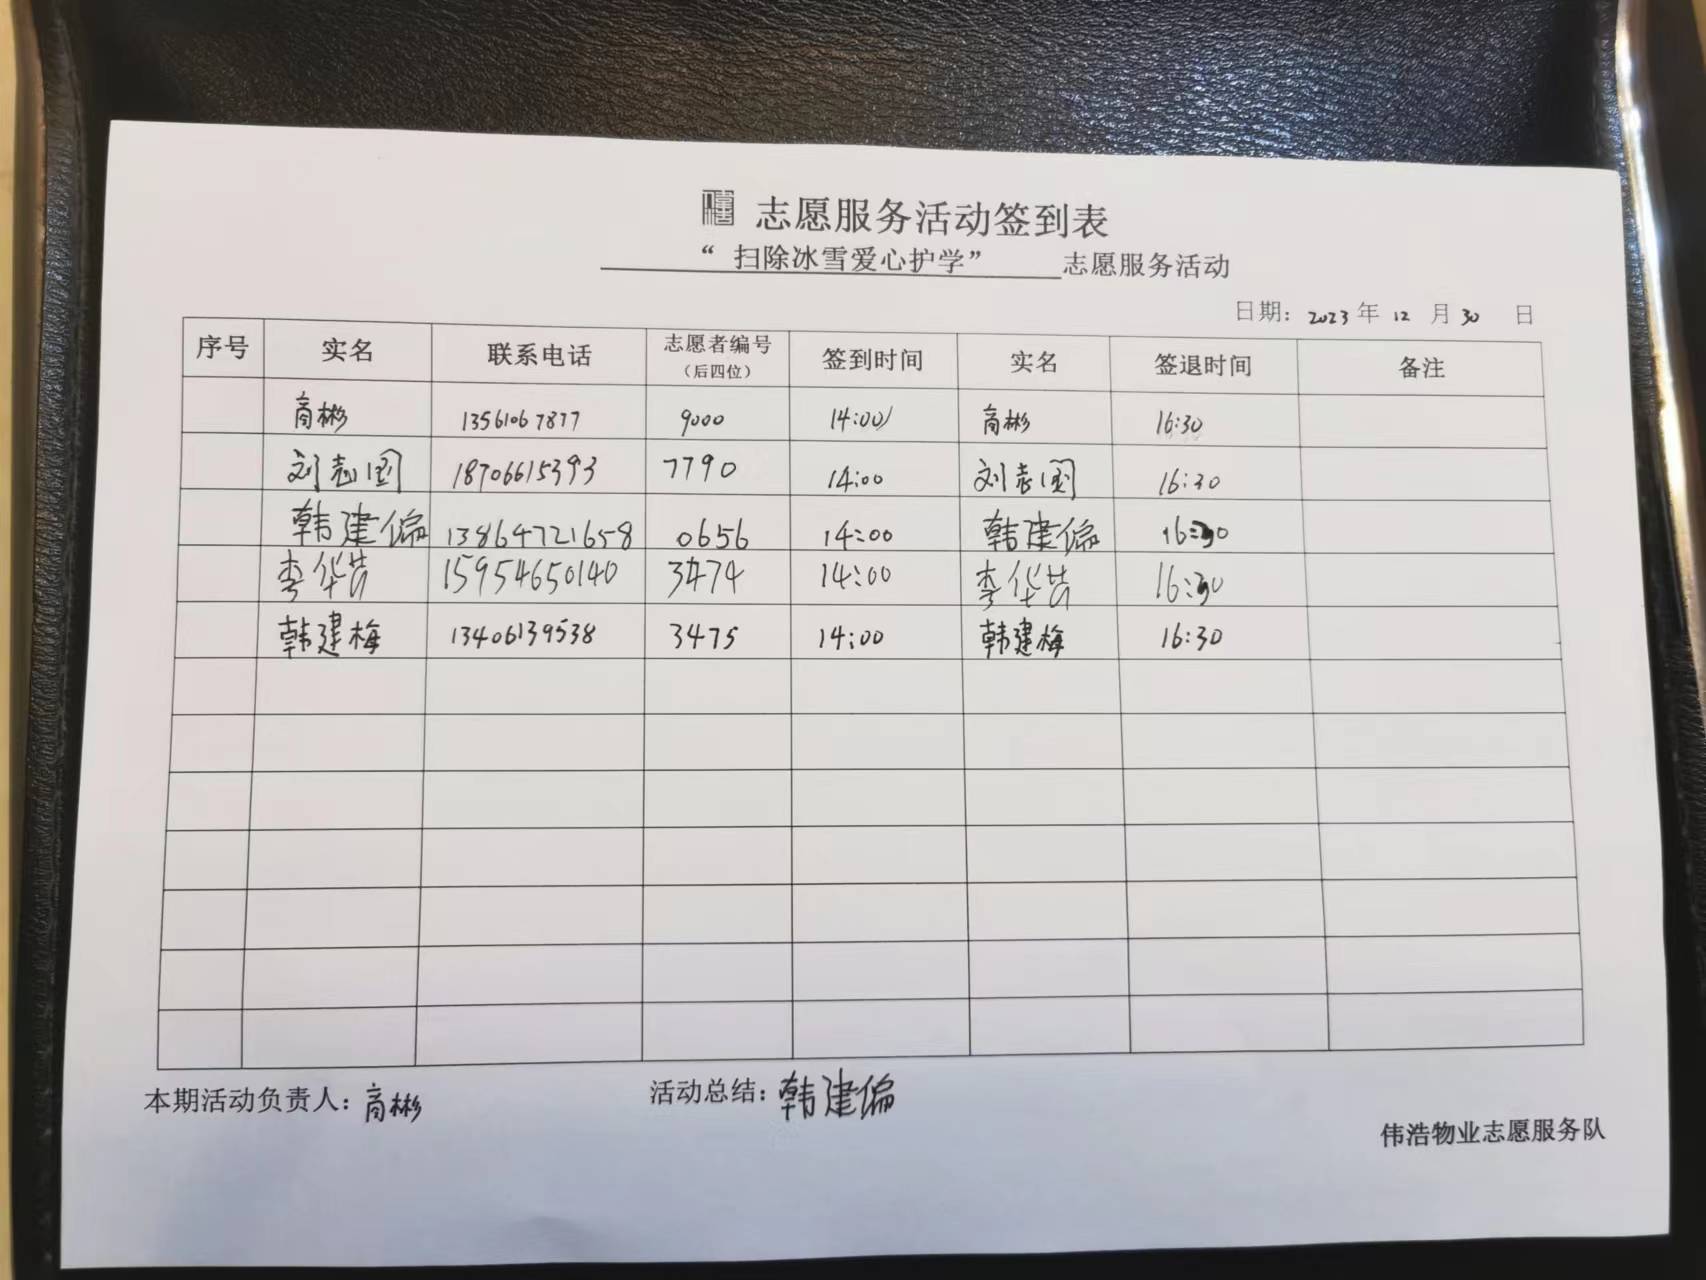 志愿服务活动签到表
“ 扫除冰雪爱心护学” 志愿服务活动
日期: 2023 年 12 月 30 日
序号 实名 联系电话 志愿者编号（后四位） 签到时间 实名 签退时间 备注
商彬 13561067877 9000 14:00 商彬 16:30
刘志国 18706615393 7790 14:00 刘志国 16:30
韩建偏 13864721658 0656 14:00 韩建偏 16:30
李华芸 15954650140 3474 14:00 李华芸 16:30
韩建梅 13406139538 3475 14:00 韩建梅 16:30
本期活动负责人: 商彬 活动总结: 韩建偏
伟浩物业志愿服务队